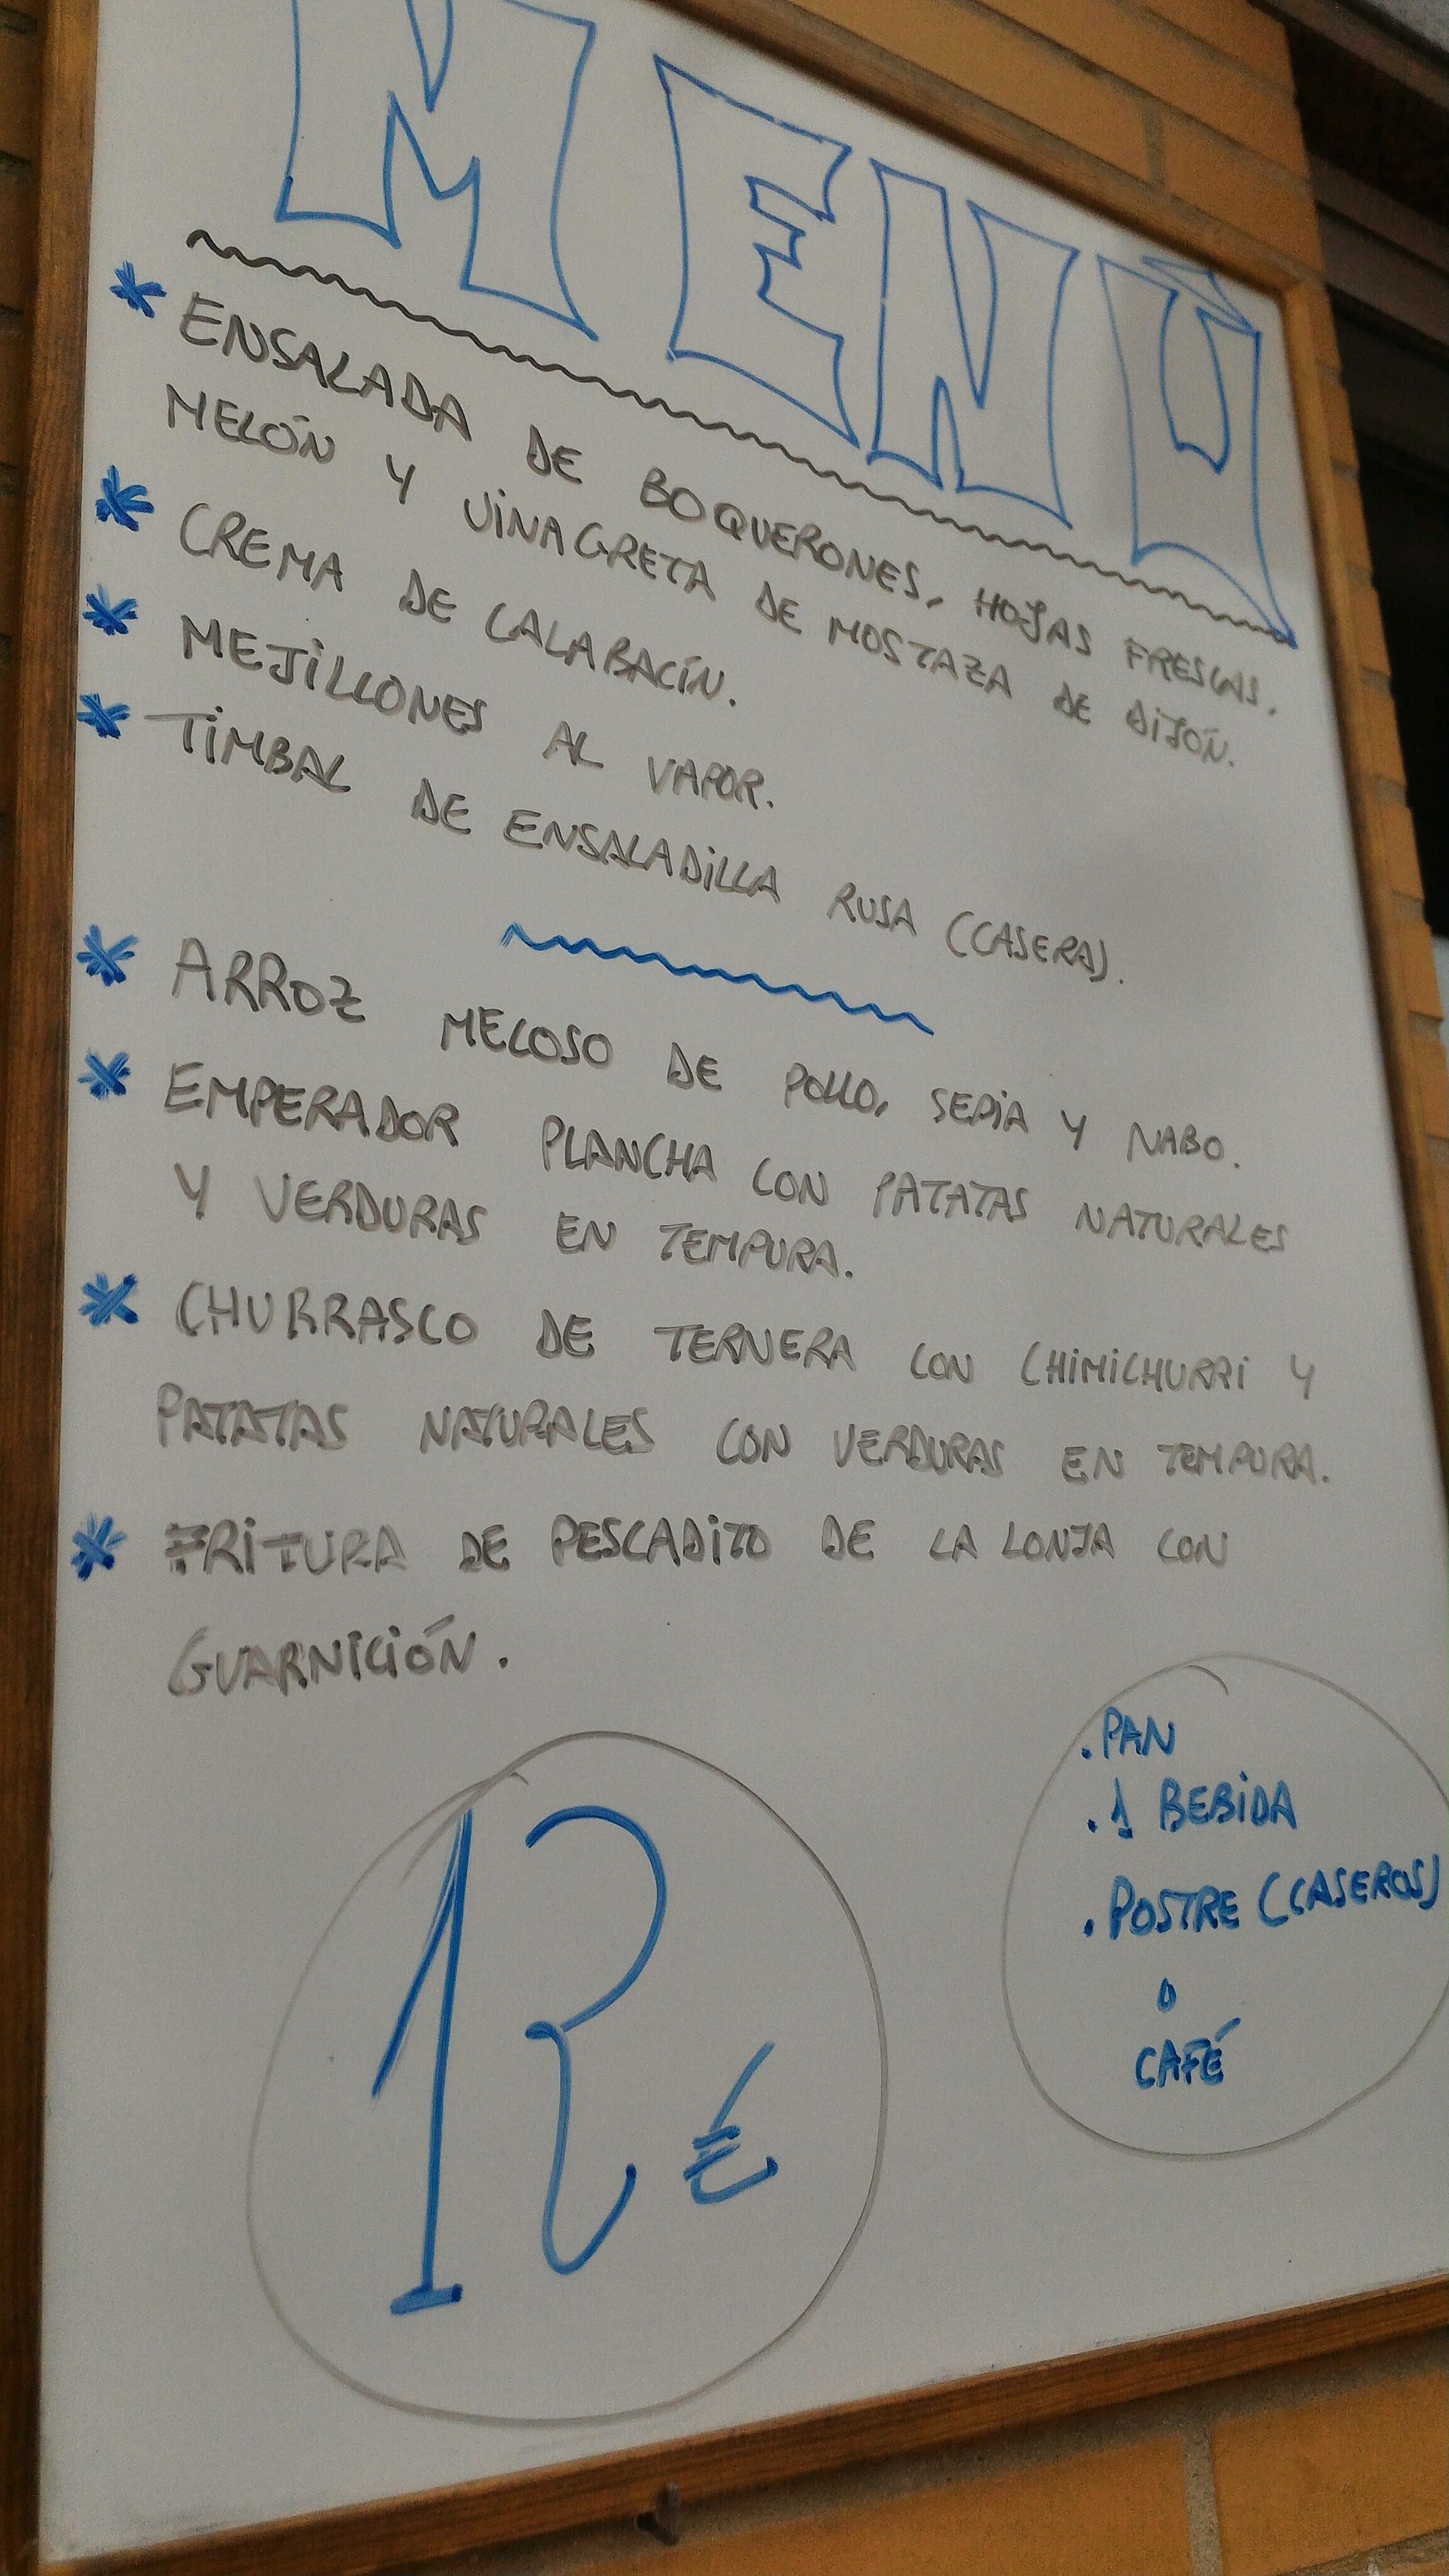 MENÚ
* ENSALADA DE BOQUERONES, HOJAS FRESCAS,
MELÓN Y VINAGRETA DE MOSTAZA DE DIJÓN.
* CREMA DE CALABACÍN.
* MEJILLONES AL VAPOR.
* TIMBAL DE ENSALADILLA RUSA (CASERA).
* ARROZ MELOSO DE POLLO, SEPIA Y NABO.
* EMPERADOR PLANCHA CON PATATAS NATURALES
Y VERDURAS EN TEMPURA.
* CHURRASCO DE TERNERA CON CHIMICHURRI Y
PATATAS NATURALES CON VERDURAS EN TEMPURA.
* FRITURA DE PESCADITO DE LA LONJA CON
GUARNICIÓN.
12 €
. PAN
. 1 BEBIDA
. POSTRE (CASEROS)
O
CAFÉ